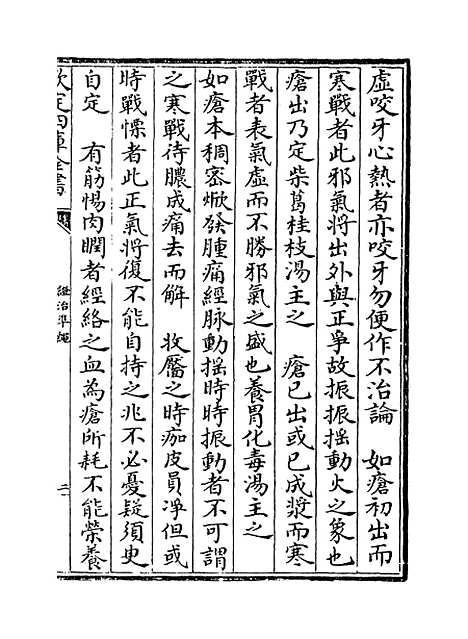 虛咬牙心熱者亦咬牙勿便作不治論　如瘡初出而
寒戰者此邪氣將出外與正爭故振振揺動火之象也
瘡出乃定柴葛桂枝湯主之　瘡已出或已成漿而寒
戰者表氣虛而不勝邪氣之盛也養胃化毒湯主之
如瘡本稠宻焮發腫痛經脉動揺時時振動者不可謂
之寒戰待膿成痛去而解　收靨之時痂皮員淨但或
時戰慄者此正氣將復不能自持之兆不必憂疑須臾
自定　有筋惕肉瞤者經絡之血為瘡所耗不能榮養
欽定四庫全書
證治凖繩